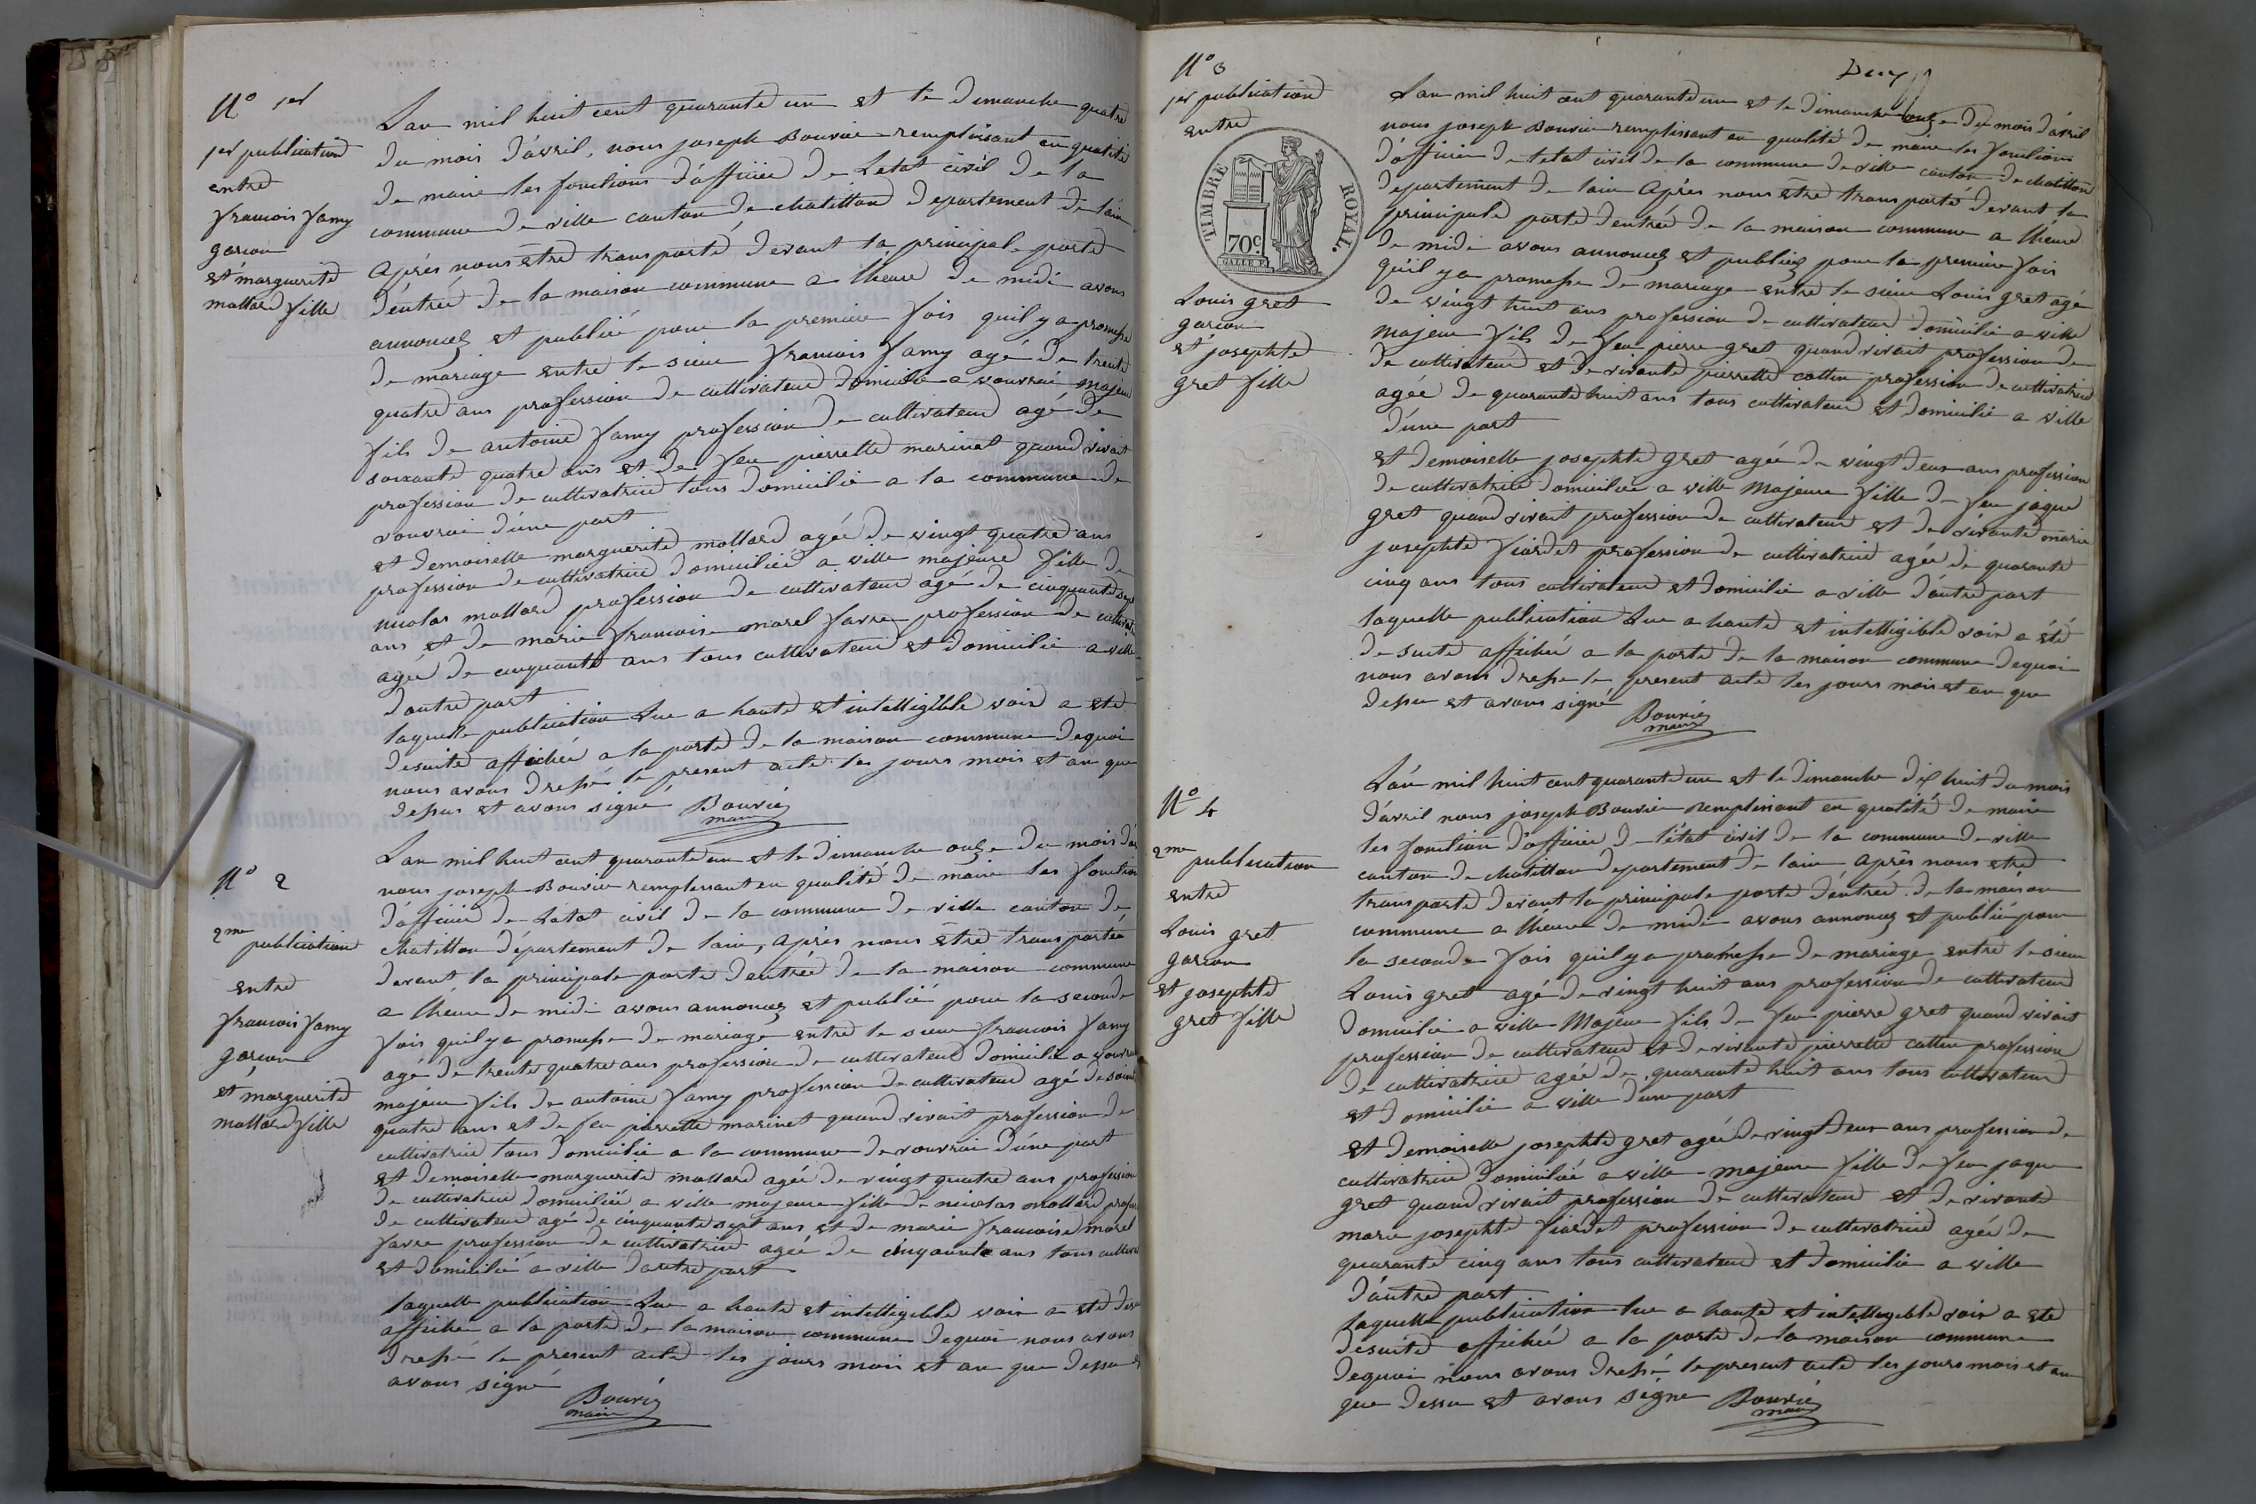 N° 1er
1er publication
entre
francois famy
garcon
et marguerite
mottard fille
Lan mil huit cent quarante un et le dimanche quatre
du mois d'avril, nous joseph Bouvié remplissant en qualité
de maire les fonctions d'officier de Letat civil de la
commune de ville canton de chatillon departement de lain
Après nous être transporté devant la principale porte
d'entrée de la maison commune a lheure de midi avons
annoncez et publié pour la premiere fois quil y a promesse
de mariage entre le sieur francois famy agé de trente
quatre ans profession de cultivateur domicilié a vouvrai majeur
fils de antoine famy profession de cultivateur agé de
soixante quatre ans et de feu pierrette marinet quand vivait
profession de cultivatrice tous domicilié a la commune de
vouvrai d'une part
et demoiselle marguerite mottard agée de vingt quatre ans
profession de cultivatrice domiciliée a ville majeure fille de
nicolas mottard profession de cultivateur agé de cinquante sept
ans et de marie francoise morel favre profession de cultivatrice
agée de cinquante ans tous cultivateur et domicilié a ville
d'autre part
laquelle publication Lue a haute et intelligible voix a eté
desuite affichée a la porte de la maison commune dequoi
nous avons dressé le present acte les jours mois et an que
dessus et avons signé Bouvié
maire
N° 2
2me publication
entre
francois famy
garcon
et marguerite
mottard fille
Lan mil huit cent quarante un et le dimanche onze du mois d'a
nous joseph Bouvié remplissant en qualité de maire les fonction
d'officier de Létat civil de la commune de ville canton de
chatillon département de lain, après nous etre transportée
devant la principale porte d'entrée de la maison commune
a lheure de midi avons annoncez et publié pour la seconde
fois quil y a promesse de mariage entre le sieur francois famy
agé de trente quatre ans profession de cultivateur domicilié a vouvrai
majeur fils de antoine famy profession de cultivateur agé de soixante
quatre ans et de feu pierrette marinet quand vivait profession de
cultivatrice tous domicilié a la commune de vouvrai d'une part
et demoiselle marguerite mottard agée de vingt quatre ans profession
de cultivatrice domiciliée a ville majeure fille de nicolas mottard profes
de cultivateur agé de cinquante sept ans et de marie francoise morel
favre profession de cultivatrice agée de cinquante ans tous cultiva
et domicilié a ville d'autre part
laquelle publication Lue a haute et intelligible voix a eté desu
affichée a la porte de la maison commune dequoi nous avons
dressé le present acte les jours mois et an que dessu et
avons signé
Bouvié
maire
N° 3
1er publication
entre
TIMBRE ROYAL
70c
GALLE F.
Louis gret
garcon
et josephte
gret fille
Lan mil huit cent quarante un et le dimanche onze du mois d'avril
nous joseph Bouvié remplissant en qualité de maire les fonctions
d'officier de letat civil de la commune de ville canton de chatillon
departement de lain Après nous être transporté devant la
principale porte d'entrée de la maison commune a lheure
de midi avons annoncez et publiez pour la première fois
qu'il y a promesse de mariage entre le sieur Louis gret agé
de vingt huit ans profession de cultivateur domicilié a ville
majeur fils de feu pierre gret quand vivait profession de
de cultivateur et de vivante pierrette cottin profession de cultivatrice
agée de quarante huit ans tous cultivateur et domicilié a ville
d'une part
et demoiselle josephte gret agée de vingt deux ans profession
de cultivatrice domiciliée a ville Majeure fille de feu jaque
gret quand vivait profession de cultivateur et de vivante marie
josephte fiardet profession de cultivatrice agée de quarante
cinq ans tous cultivateur et domicilié a ville d'autre part
laquelle publication Lue a haute et intelligible voix a été
de suite affichée a la porte de la maison commune dequoi
nous avons dresse le present acte les jours mois et an que
dessu et avons signé
Bouvié
maire
N° 4
2me publication
entre
Louis gret
garcon
et josephte
gret fille
L'an mil huit cent quarante un et le dimanche dix huit du mois
d'avril nous joseph Bouvié remplissant en qualité de maire
les fonction d'officier de l'état civil de la commune de ville
canton de chatillon departement de lain Après nous etre
transporté devant la principale porte d'entrée de la maison
commune a lheure de midi avons annoncez et publié pour
la seconde fois quil y a promesse de mariage entre le sieur
Louis gret agé de vingt huit ans profession de cultivateur
domicilié a ville Majeur fils de feu pierre gret quand vivait
profession de cultivateur et de vivante pierrette cottin profession
de cultivatrice agée de quarante huit ans tous cultivateur
et domicilié a ville d'une part
et demoiselle josephte gret agée de vingt deux ans profession de
cultivatrice domiciliée a ville majeure fille de feu jaque
gret quand vivait profession de cultivateur et de vivante
marie josephte fiardet profession de cultivatrice agée de
quarante cinq ans tous cultivateur et domicilié a ville
d'autre part
laquelle publication lue a haute et intelligible voix a eté
desuite affichée a la porte de la maison commune
dequoi nous avons dressé le present acte les jours mois et an
que dessu et avons signé Bouvié
maire